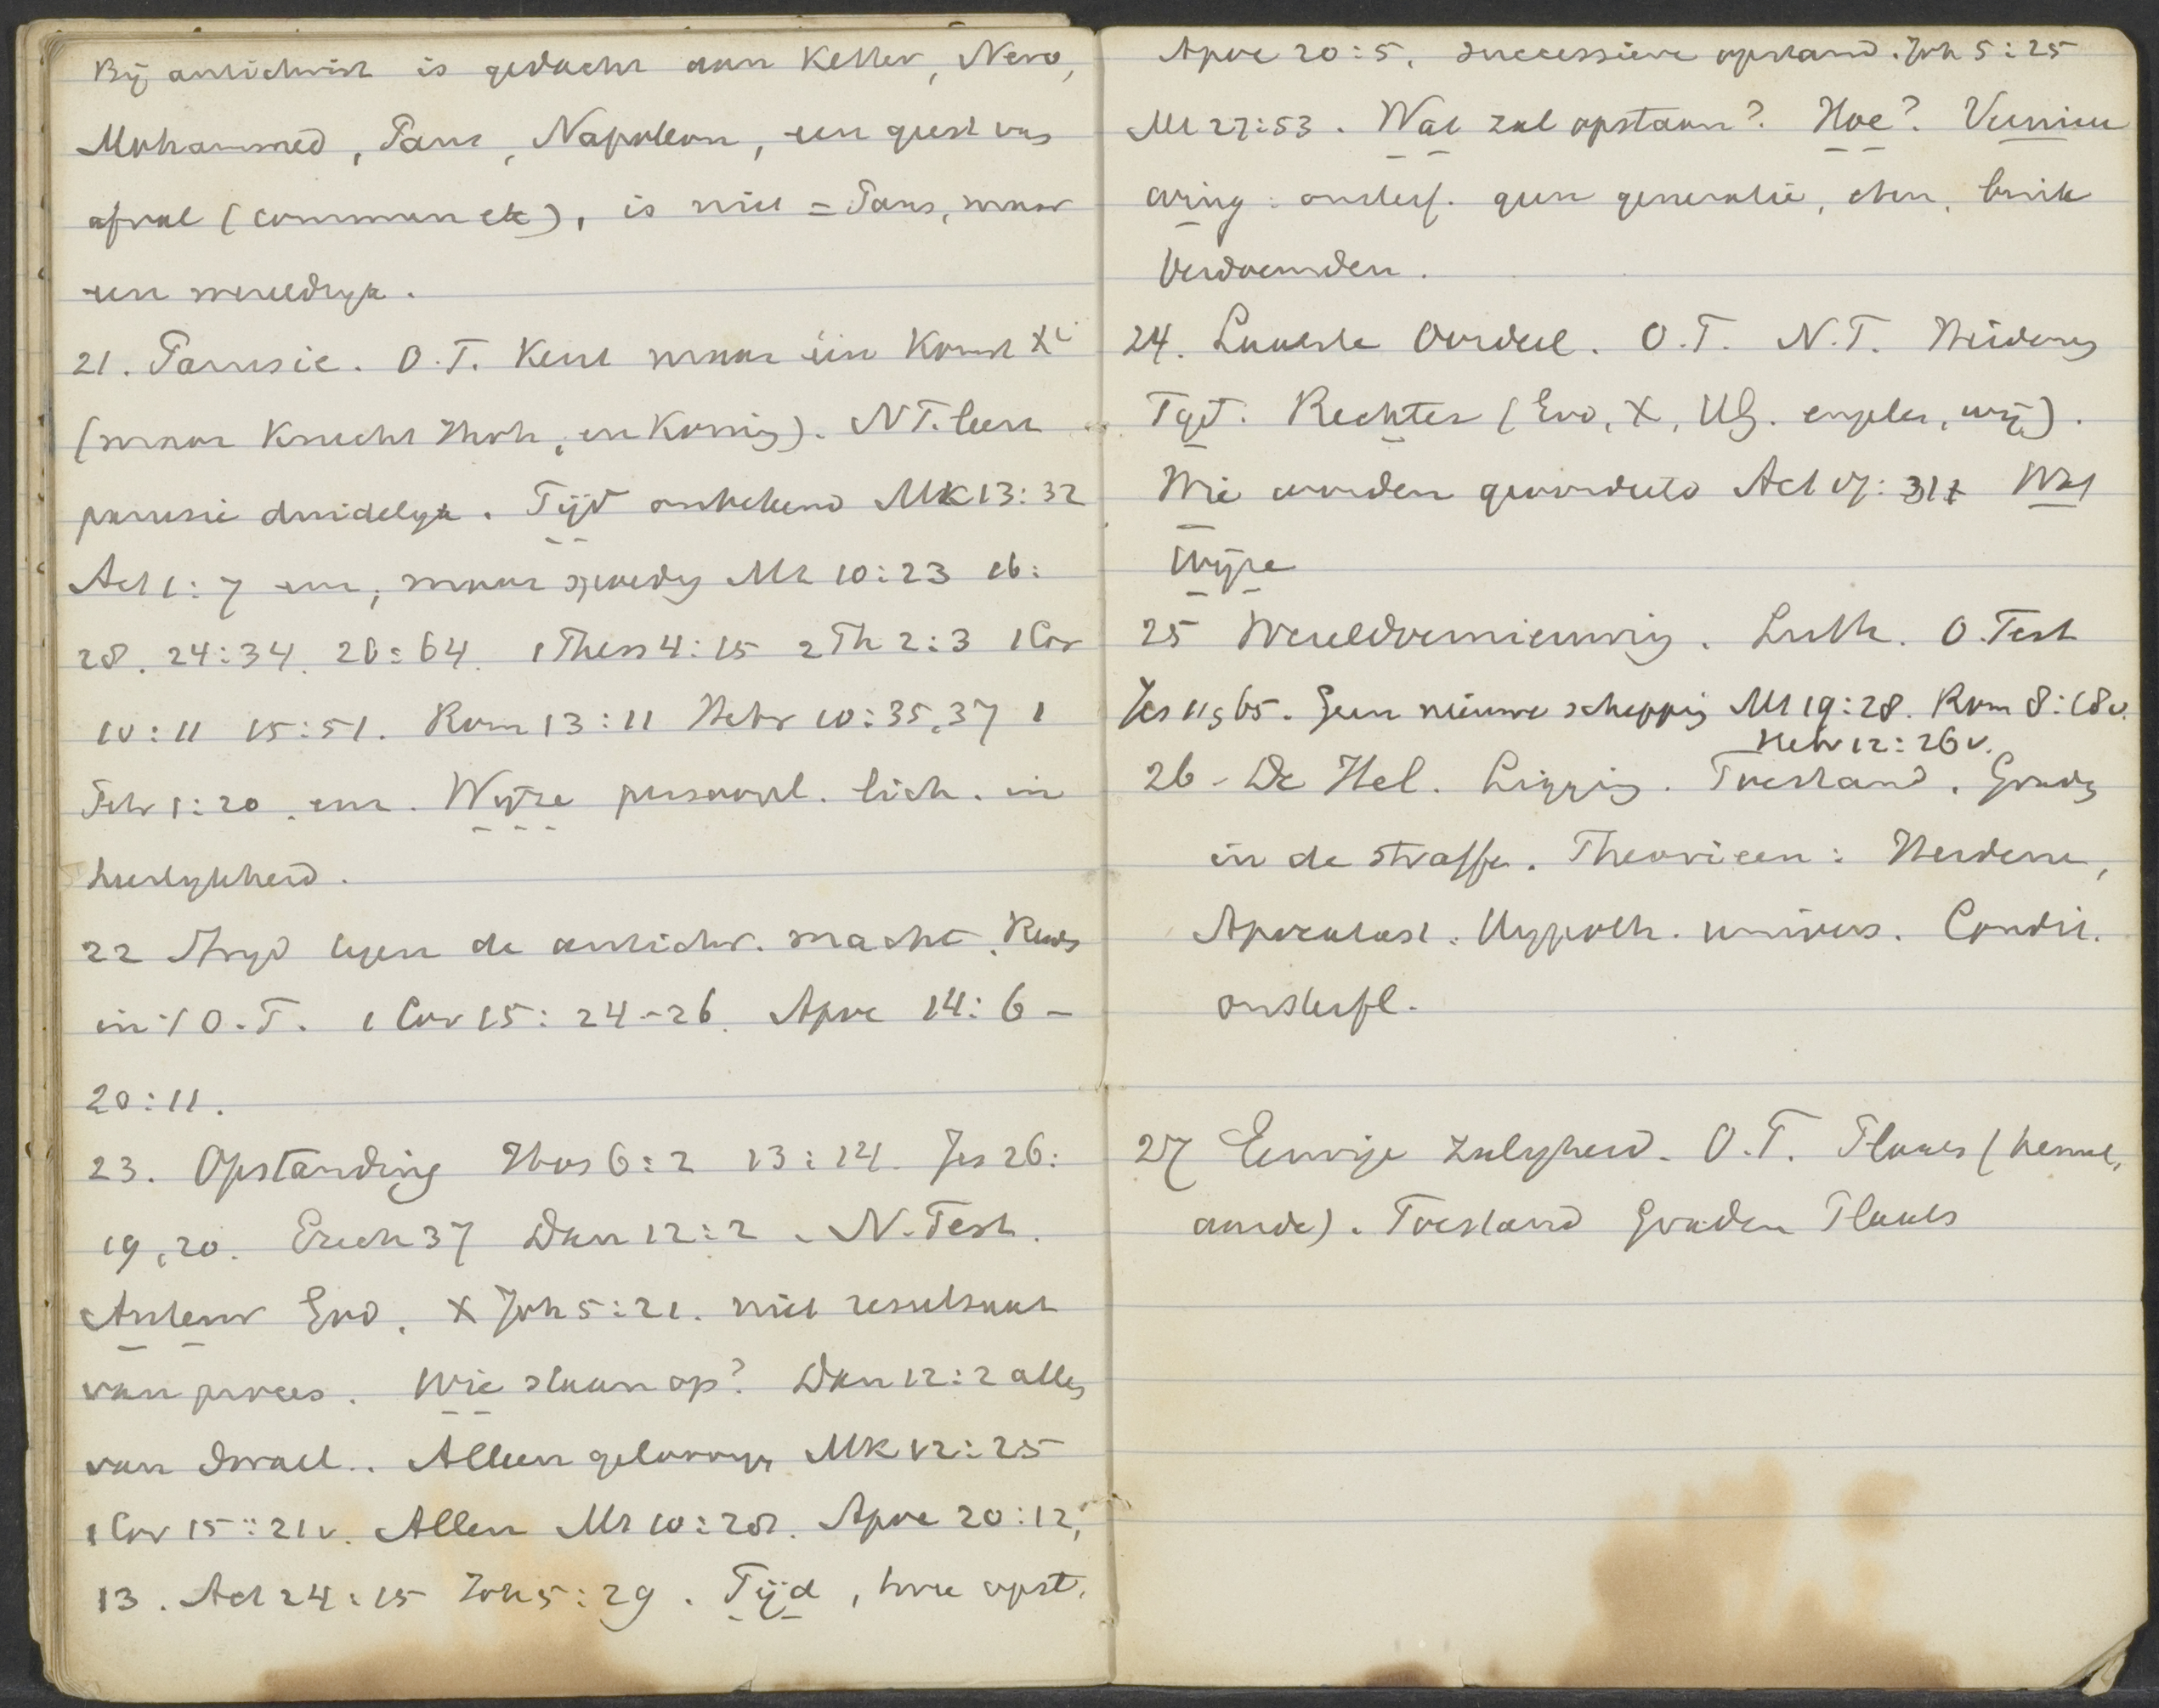 Bij antichrist is gedacht aan Ketter, Nero,
Mohammed, Paus, Napoleon, een geest van
afval (commun etc), is niet = Paus, maar
een wereldryk.
21. Parusie. O.T. Kent maar één Komst Xi
(maar Knecht Jhvh, en Koning). N.T. leert
parusie duidelyk. Tijd onbekend Mk 13:32
Act 1:7 enz, maar spoedig Mt 10:23 16:
28. 24:34. 26:64. 1 Thess 4:15 2 Th 2:3 1 Cor
10:11 15:51. Rom 13:11 Hebr 10:35,37 1
Petr 1:20 enz. Wyze persoonl. lich. in
heerlykheid.
22 Stryd tegen de antichr. macht. Reeds
in 't O.T. 1 Cor 15:24-26. Apoc 14:6-
20:11.
23. Opstanding Hos 6:2 13:14. Jes 26:
19,20. Ezech 37 Dan 12:2. N. Test.
Auteur God. X Joh 5:21. niet resultaat
van proces. Wie staan op? Dan 12:2 alles
van Israel.. Alleen geloovign Mk 12:25
1 Cor 15:21v. Allen Mt 10:28. Apoc 20:12,
13. Act 24:15 Joh 5:29. Tijd, twee opst.
Apoc 20:5. successieve opstand. Joh 5:25
Mt 27:53. Wat zal opstaan? Hoe? Vernieu
wing: onsterf. geen generatie, eten,
Verdoemden.
24. Laatste Oordeel. O.T. N.T. Heidens
Tijd. Rechter (God, X, HG. engelen, wij).
Wie worden geoordeeld Act 17:31 Wat
Wijze
25 Wereldvernieuwing. Luth. O. Test
Jes 11, 65. Geen nieuwe schepping Mt 19:28. Rom 8:18v.
Hebr 12:26v.
26 - De Hel. Ligging. Toestand. Graden
in de straffe. Theorieen: Heidens,
Apocatast. Hypoth. univers. Condit.
onsterfl.
27 Eeuwige zaligheid. O.T. Plaats (hemel,
aarde). Toestand Graden Plaats